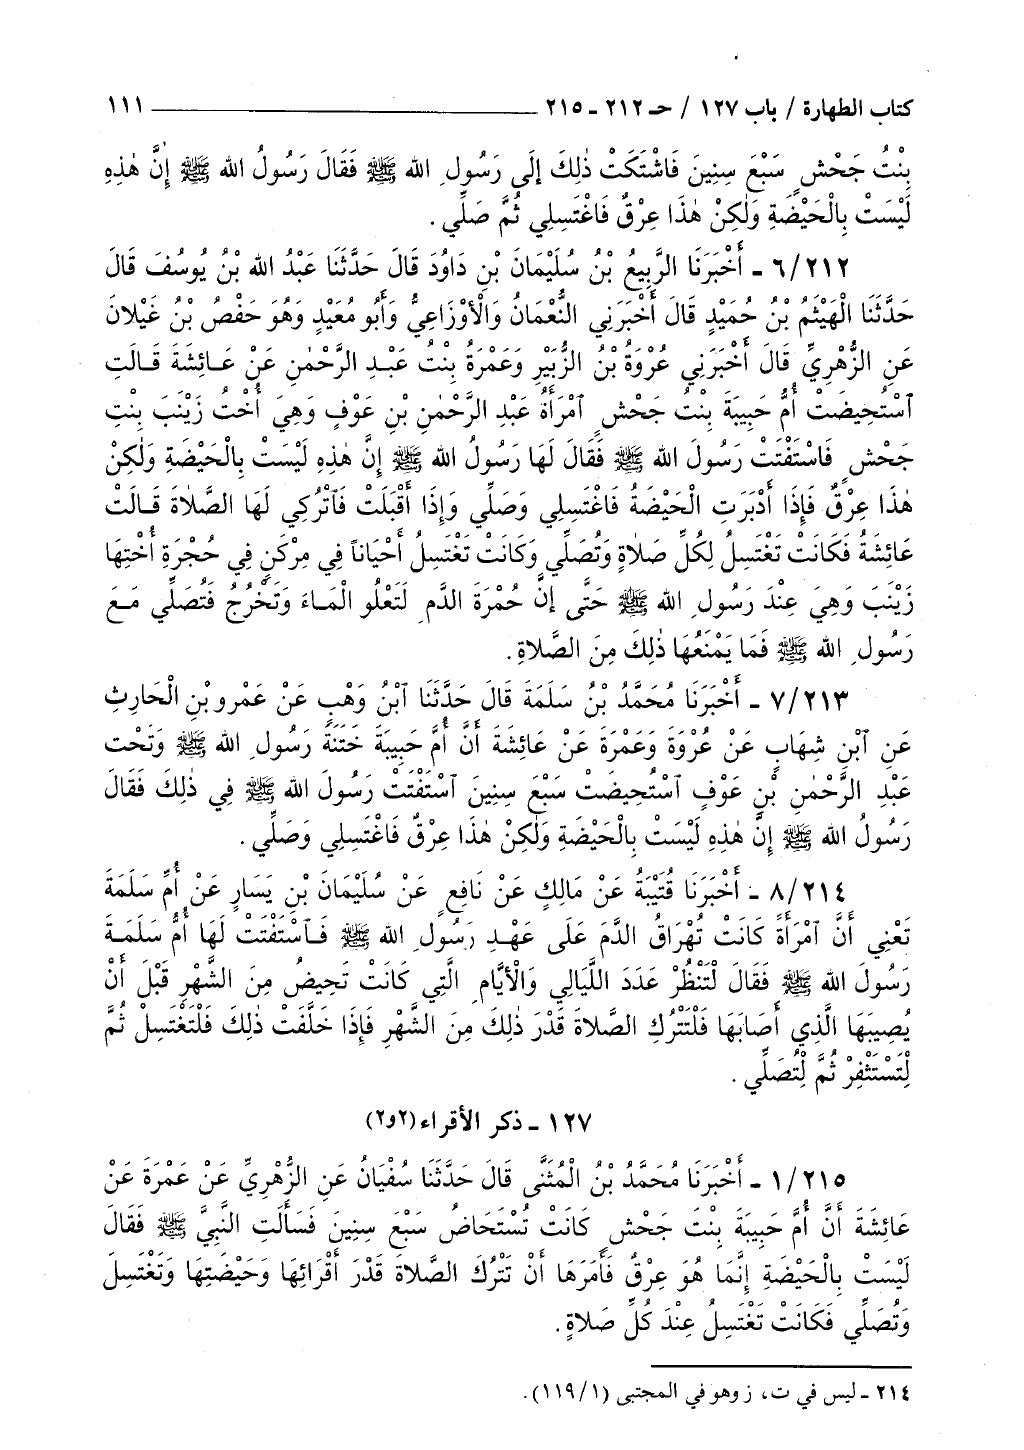 كتاب الطهارة / باب ١٢٧ / حـ ٢١٢ ـ ٢١٥ ١١١
بِنْتُ جَحْشٍ سَبْعَ سِنِينَ فَاشْتَكَتْ ذٰلِكَ إلَى رَسُولِ الله ﷺ فَقَالَ رَسُولُ الله ﷺ إنَّ هٰذِهِ
لَيْسَتْ بِالْحَيْضَةِ وَلٰكِنْ هٰذَا عِرْقٌ فَاغْتَسِلِي ثُمَّ صَلِّي.
٦/٢١٢ ـ أَخْبَرَنَا الرَّبِيعُ بْنُ سُلَيْمَانَ بْنِ دَاوُدَ قَالَ حَدَّثَنَا عَبْدُ الله بْنُ يُوسُفَ قَالَ
حَدَّثَنَا الْهَيْثَمُ بْنُ حُمَيْدٍ قَالَ أَخْبَرَنِي النُّعْمَانُ وَالْأَوْزَاعِيُّ وَأَبُو مُعَيْدٍ وَهُوَ حَفْصُ بْنُ غَيْلَانَ
عَنِ الزُّهْرِيِّ قَالَ أَخْبَرَنِي عُرْوَةُ بْنُ الزُّبَيْرِ وَعَمْرَةُ بِنْتُ عَبْدِ الرَّحْمٰنِ عَنْ عَائِشَةَ قَالَتِ
ٱسْتُحِيضَتْ أُمُّ حَبِيبَةَ بِنْتُ جَحْشٍ ٱمْرَأَةُ عَبْدِ الرَّحْمٰنِ بْنِ عَوْفٍ وَهِيَ أُخْتُ زَيْنَبَ بِنْتِ
جَحْشٍ فَاسْتَفْتَتْ رَسُولَ الله ﷺ فَقَالَ لَهَا رَسُولُ الله ﷺ إنَّ هٰذِهِ لَيْسَتْ بِالْحَيْضَةِ وَلٰكِنْ
هٰذَا عِرْقٌ فَإذَا أَدْبَرَتِ الْحَيْضَةُ فَاغْتَسِلِي وَصَلِّي وَإذَا أَقْبَلَتْ فَٱتْرُكِي لَهَا الصَّلَاةَ قَالَتْ
عَائِشَةُ فَكَانَتْ تَغْتَسِلُ لِكُلِّ صَلَاةٍ وَتُصَلِّي وَكَانَتْ تَغْتَسِلُ أَحْيَاناً فِي مِرْكَنٍ فِي حُجْرَةِ أُخْتِهَا
زَيْنَبَ وَهِيَ عِنْدَ رَسُولِ الله ﷺ حَتَّى إنَّ حُمْرَةَ الدَّمِ لَتَعْلُو الْمَاءَ وَتَخْرُجُ فَتُصَلِّي مَعَ
رَسُولِ الله ﷺ فَمَا يَمْنَعُهَا ذٰلِكَ مِنَ الصَّلَاةِ.
٧/٢١٣ ـ أَخْبَرَنَا مُحَمَّدُ بْنُ سَلَمَةَ قَالَ حَدَّثَنَا ٱبْنُ وَهْبٍ عَنْ عَمْرِو بْنِ الْحَارِثِ
عَنِ ٱبْنِ شِهَابٍ عَنْ عُرْوَةَ وَعَمْرَةَ عَنْ عَائِشَةَ أَنَّ أُمَّ حَبِيبَةَ خَتَنَةَ رَسُولِ الله ﷺ وَتَحْتَ
عَبْدِ الرَّحْمٰنِ بْنِ عَوْفٍ ٱسْتُحِيضَتْ سَبْعَ سِنِينَ ٱسْتَفْتَتْ رَسُولَ الله ﷺ فِي ذٰلِكَ فَقَالَ
رَسُولُ الله ﷺ إنَّ هٰذِهِ لَيْسَتْ بِالْحَيْضَةِ وَلٰكِنْ هٰذَا عِرْقٌ فَاغْتَسِلِي وَصَلِّي.
٨/٢١٤ ـ أَخْبَرَنَا قُتَيْبَةُ عَنْ مَالِكٍ عَنْ نَافِعٍ عَنْ سُلَيْمَانَ بْنِ يَسَارٍ عَنْ أُمِّ سَلَمَةَ
تَعْنِي أَنَّ ٱمْرَأَةً كَانَتْ تُهْرَاقُ الدَّمَ عَلَى عَهْدِ رَسُولِ الله ﷺ فَٱسْتَفْتَتْ لَهَا أُمُّ سَلَمَةَ
رَسُولَ الله ﷺ فَقَالَ لْتَنْظُرْ عَدَدَ اللَّيَالِي وَالْأَيَّامِ الَّتِي كَانَتْ تَحِيضُ مِنَ الشَّهْرِ قَبْلَ أَنْ
يُصِيبَهَا الَّذِي أَصَابَهَا فَلْتَتْرُكِ الصَّلَاةَ قَدْرَ ذٰلِكَ مِنَ الشَّهْرِ فَإذَا خَلَّفَتْ ذٰلِكَ فَلْتَغْتَسِلْ ثُمَّ
لِتَسْتَثْفِرْ ثُمَّ لْتُصَلِّي.
١٢٧ ـ ذكر الأقراء (٢و٢)
١/٢١٥ ـ أَخْبَرَنَا مُحَمَّدُ بْنُ الْمُثَنَّى قَالَ حَدَّثَنَا سُفْيَانُ عَنِ الزُّهْرِيِّ عَنْ عَمْرَةَ عَنْ
عَائِشَةَ أَنَّ أُمَّ حَبِيبَةَ بِنْتَ جَحْشٍ كَانَتْ تُسْتَحَاضُ سَبْعَ سِنِينَ فَسَأَلَتِ النَّبِيَّ ﷺ فَقَالَ
لَيْسَتْ بِالْحَيْضَةِ إنَّمَا هُوَ عِرْقٌ فَأَمَرَهَا أَنْ تَتْرُكَ الصَّلَاةَ قَدْرَ أَقْرَائِهَا وَحَيْضَتِهَا وَتَغْتَسِلَ
وَتُصَلِّي فَكَانَتْ تَغْتَسِلُ عِنْدَ كُلِّ صَلَاةٍ.
٢١٤ ـ ليس في ت، ز وهو في المجتبى (١/ ١١٩).